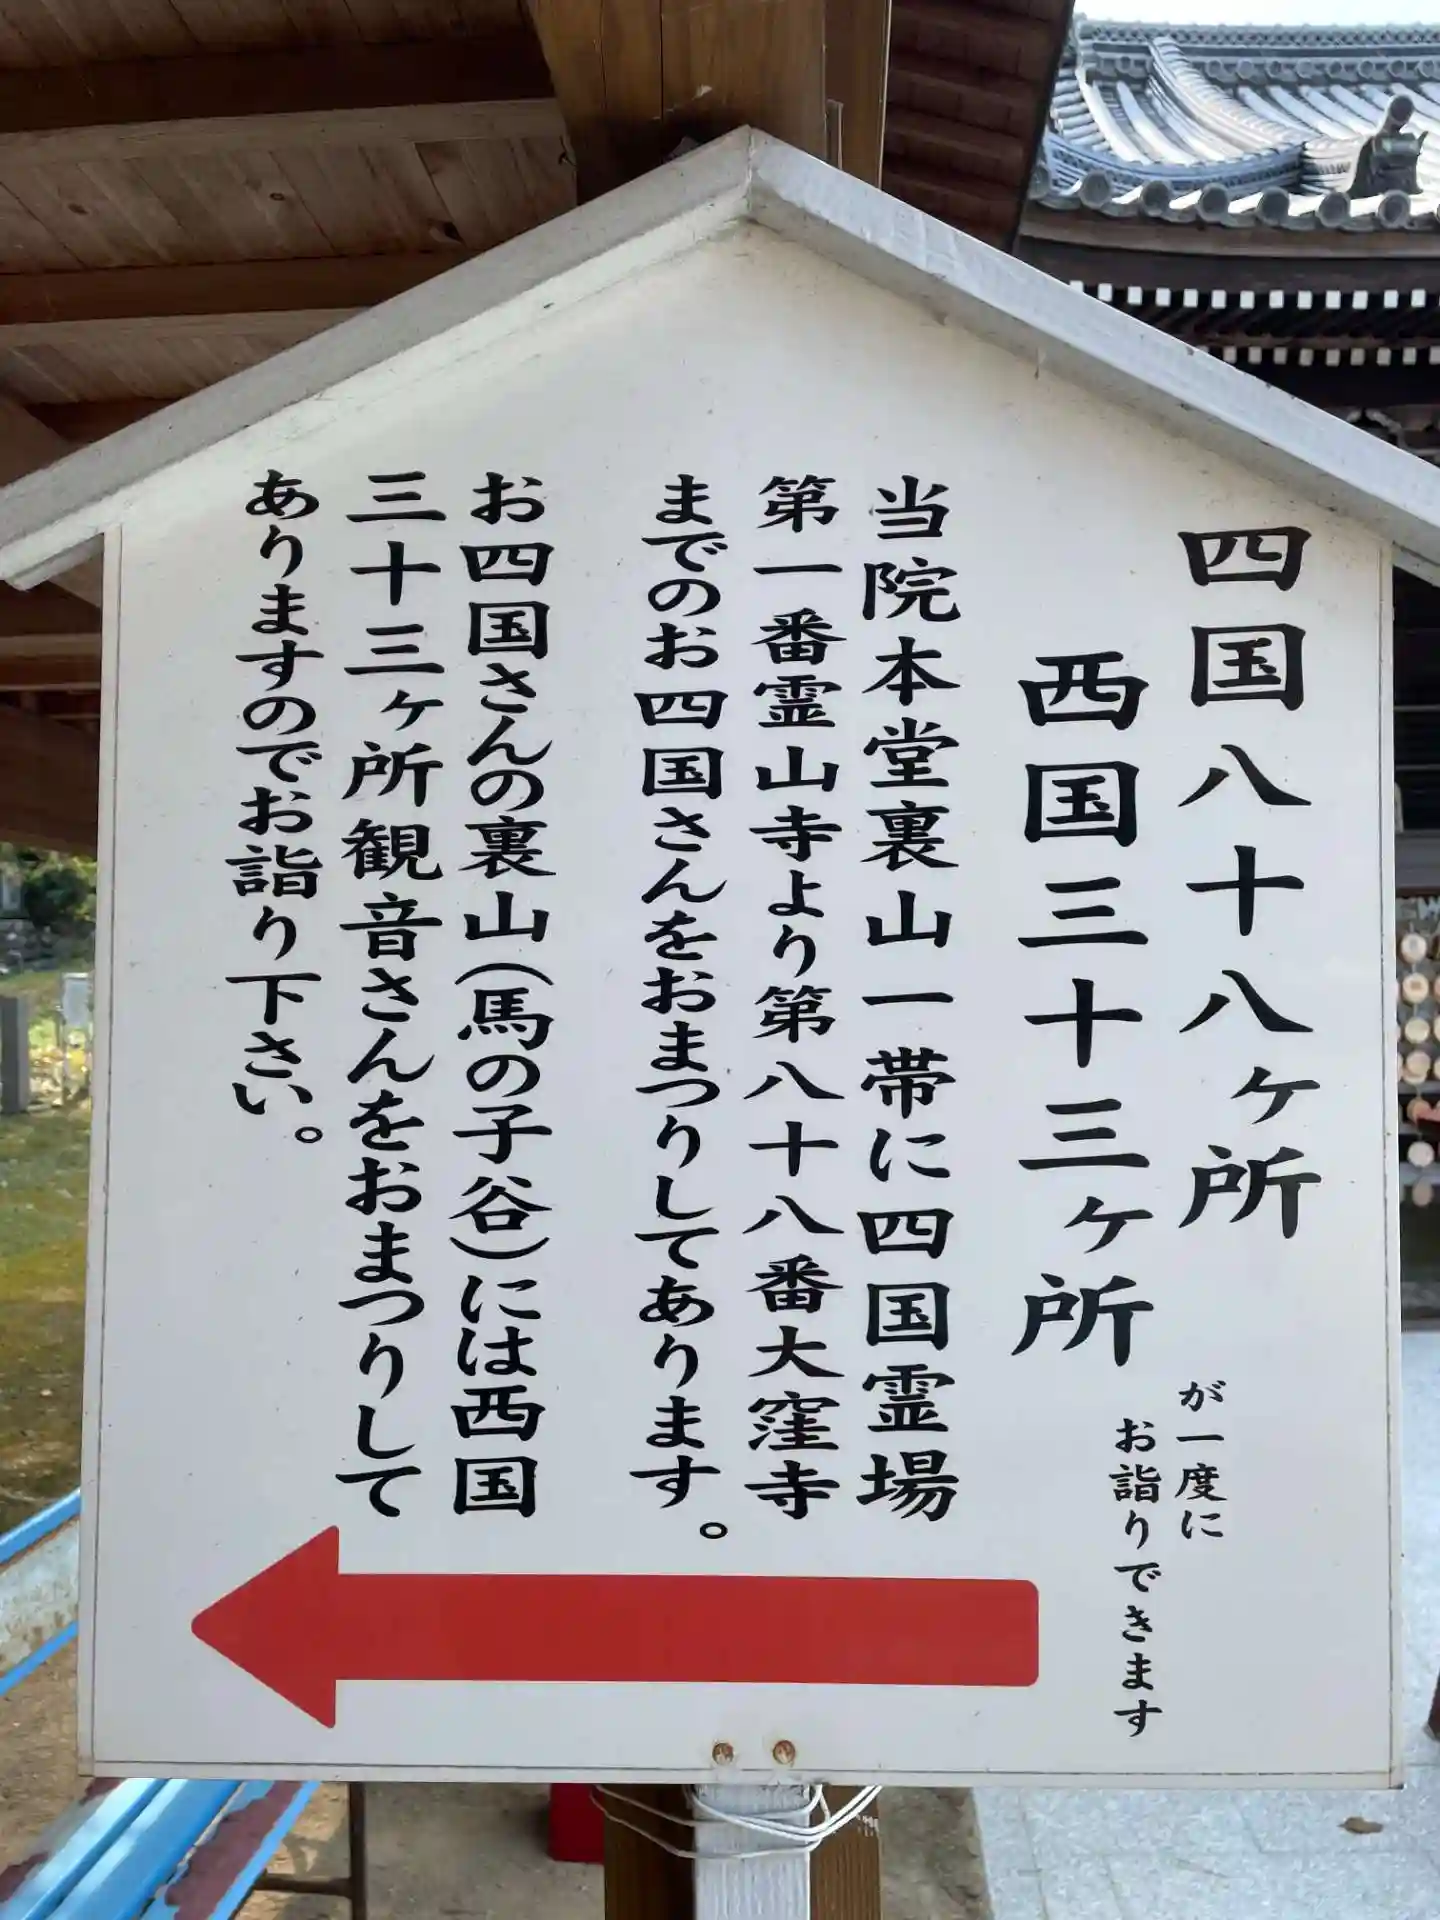 四国八十八ヶ所
西国三十三ヶ所
が一度に
お詣りできます
当院本堂裏山一帯に四国霊場
第一番霊山寺より第八十八番大窪寺
までのお四国さんをおまつりしてあります。
お四国さんの裏山(馬の子谷)には西国
三十三ヶ所観音さんをおまつりして
ありますのでお詣り下さい。